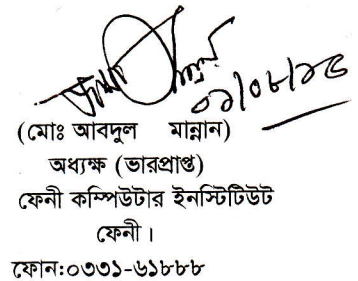 ০১/০৮/১৫
(মোঃ আবদুল মান্নান)
অধ্যক্ষ (ভারপ্রাপ্ত)
ফেনী কম্পিউটার ইনস্টিটিউট
ফেনী।
ফোন:০৩৩১-৬১৮৮৮